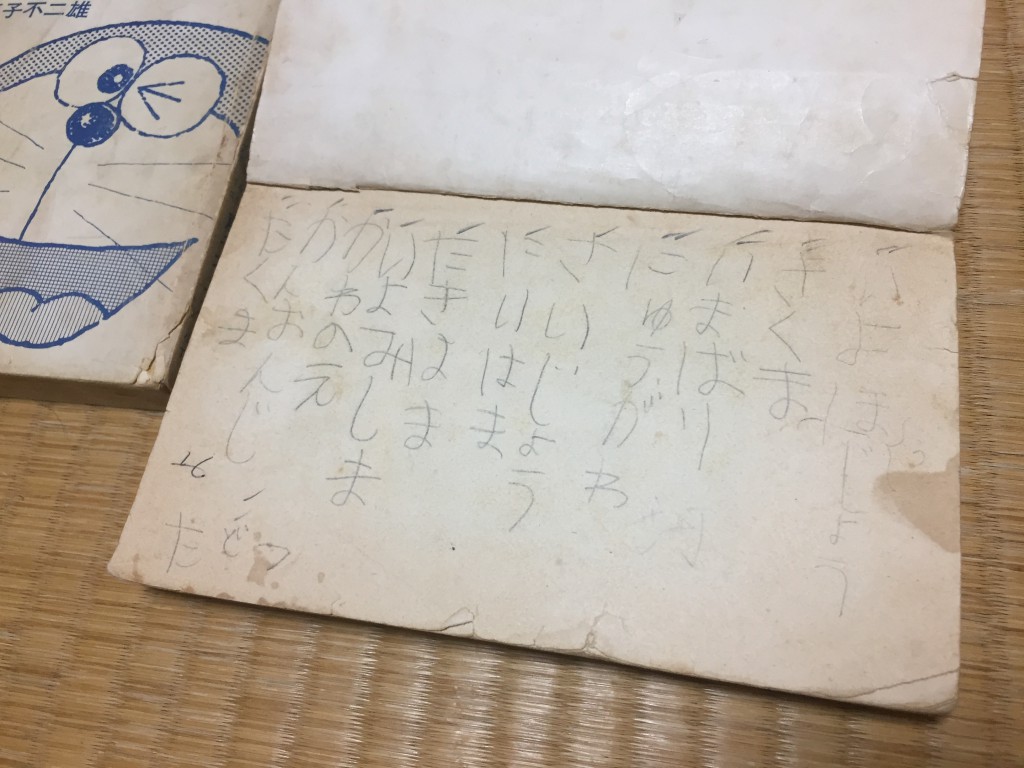 子不二雄
いよほじょう
きくま
いまばり
にゅうがわ
さいじょう
にいはま
たきはま
いよみしま
かわのえ
かんおんじ
たくま
たどつ